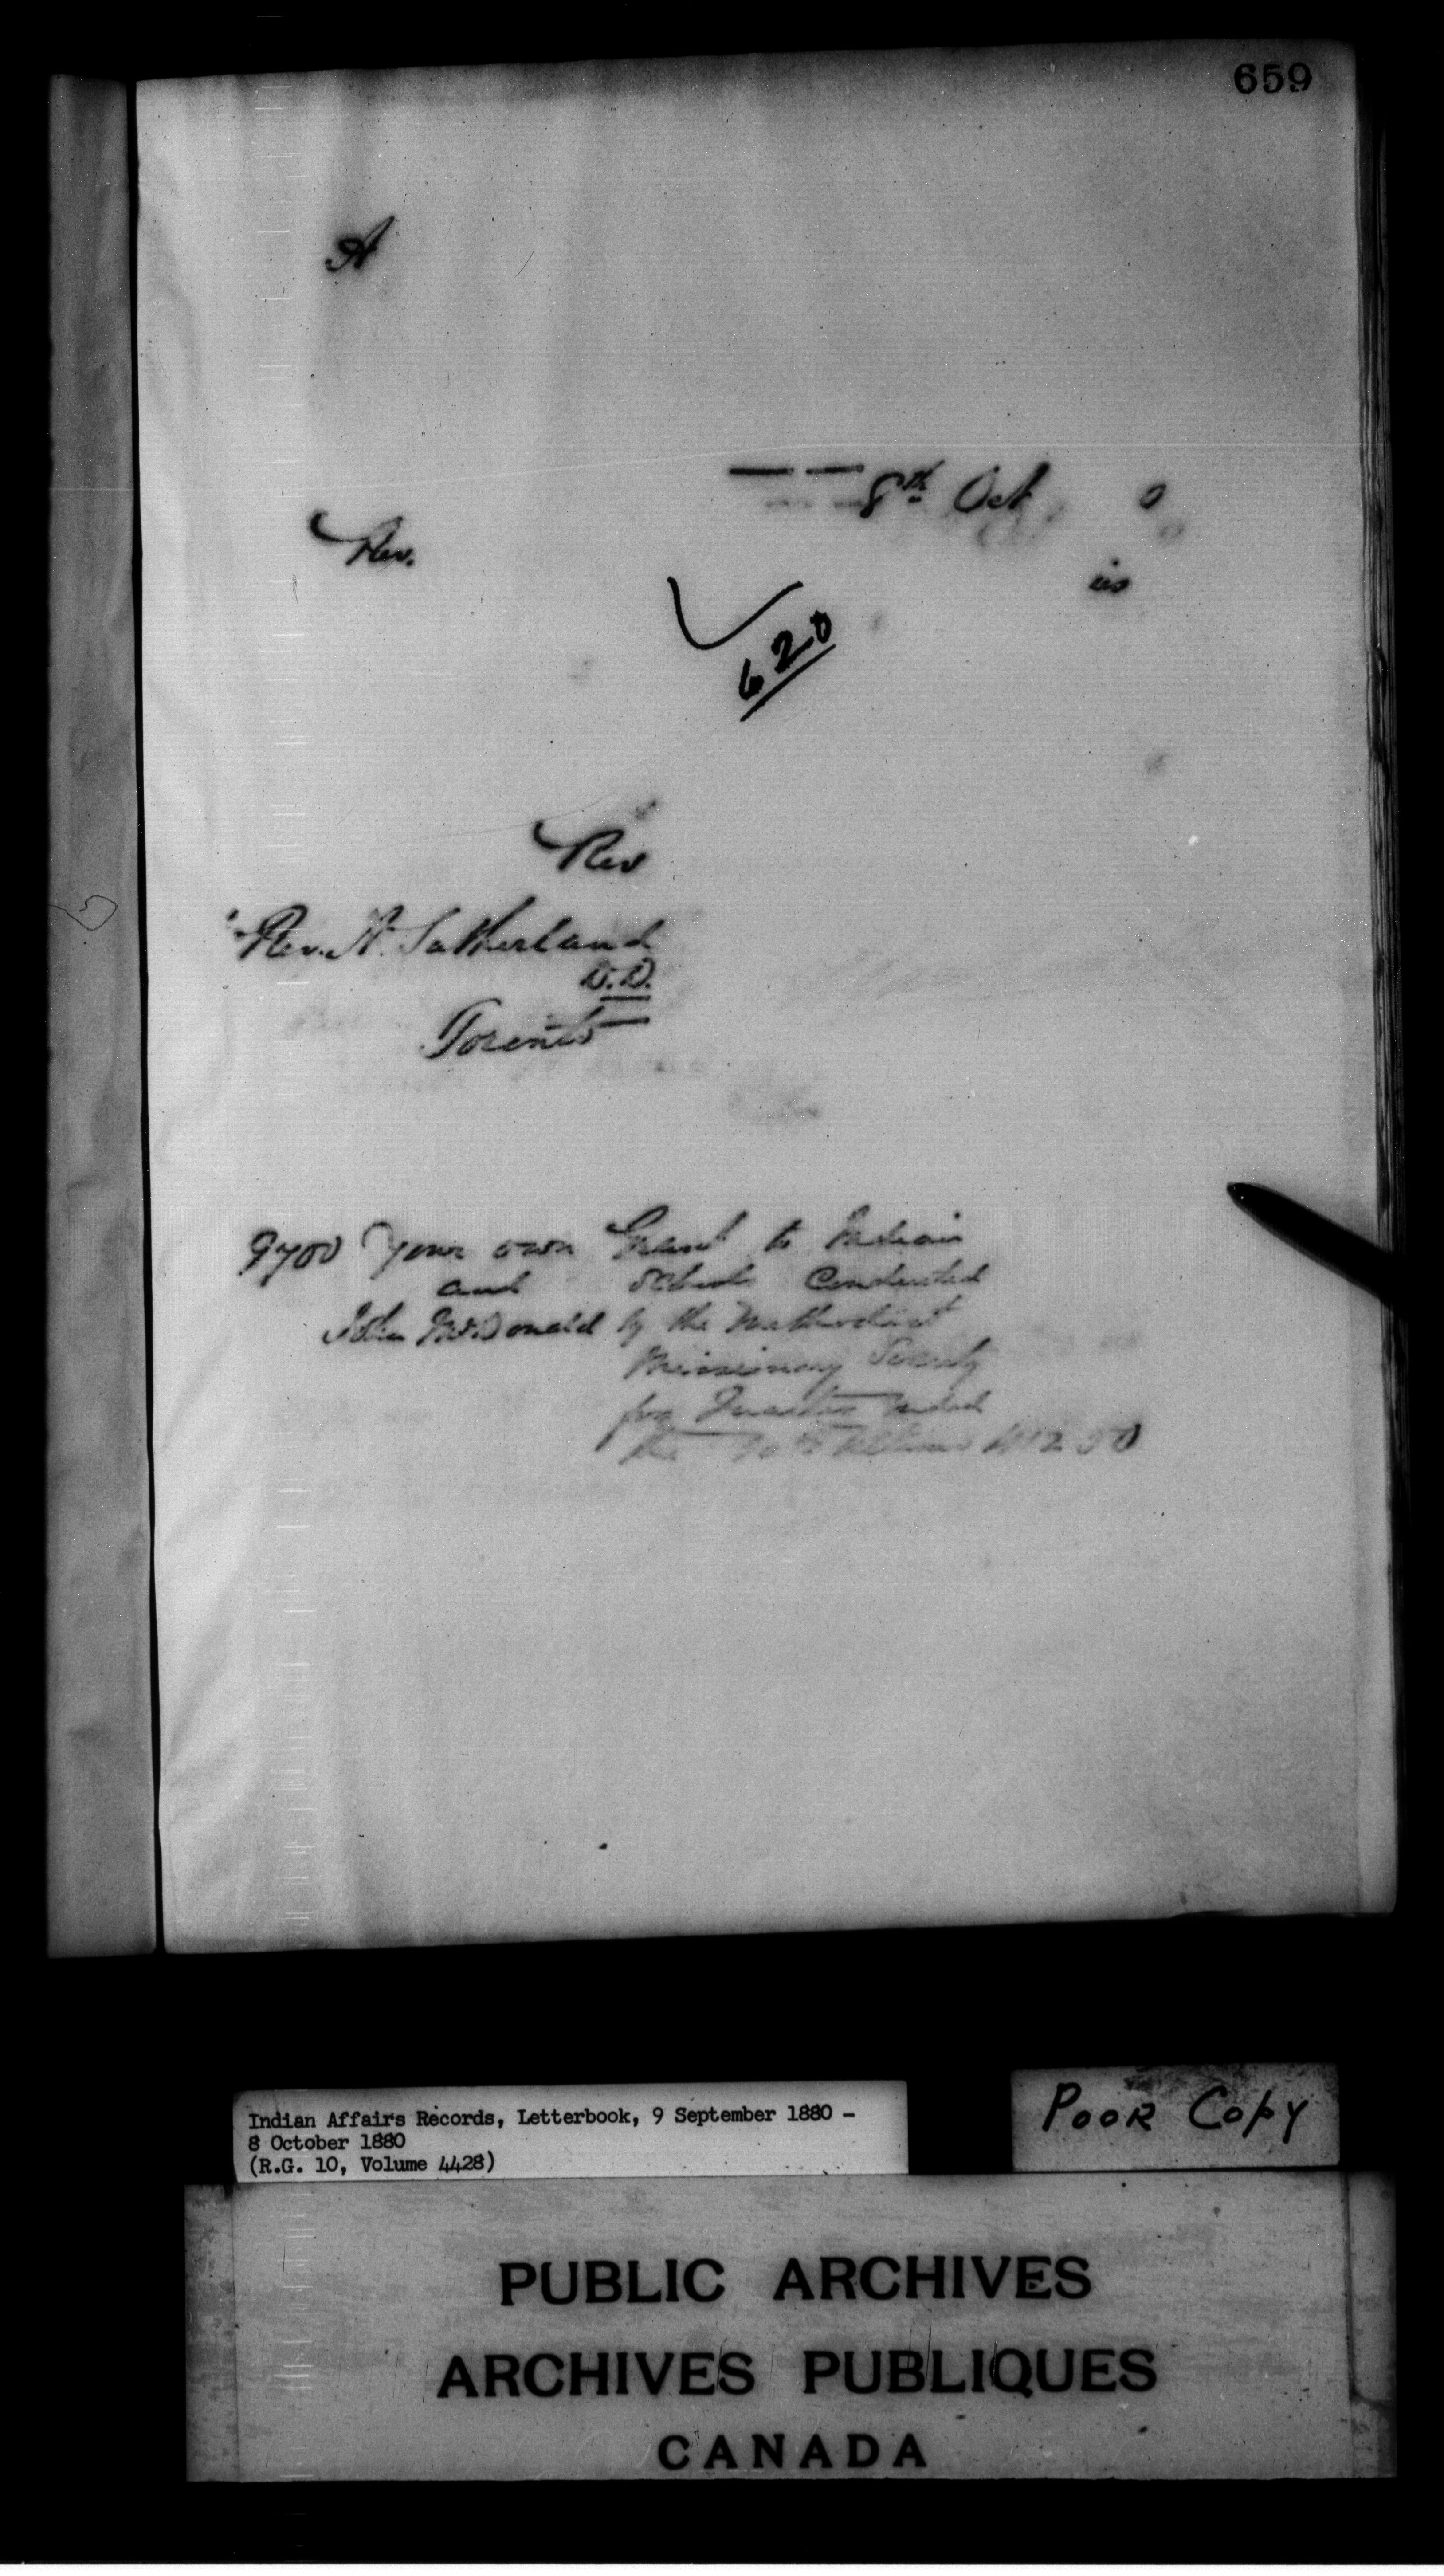 659
A
8th Oct 0
Rev. is
620
Rev
Rev. A. Sutherland
D.D.
Toronto
9700 Your own Grant to Indian
and Schools Conducted
John McDonald by the Methodist
Missionary Society
for Quarter ended
the 30th 412 50
Indian Affairs Records, Letterbook, 9 September 1880 -
8 October 1880
(R.G. 10, Volume 4428)
POOR COPY
PUBLIC ARCHIVES
ARCHIVES PUBLIQUES
CANADA